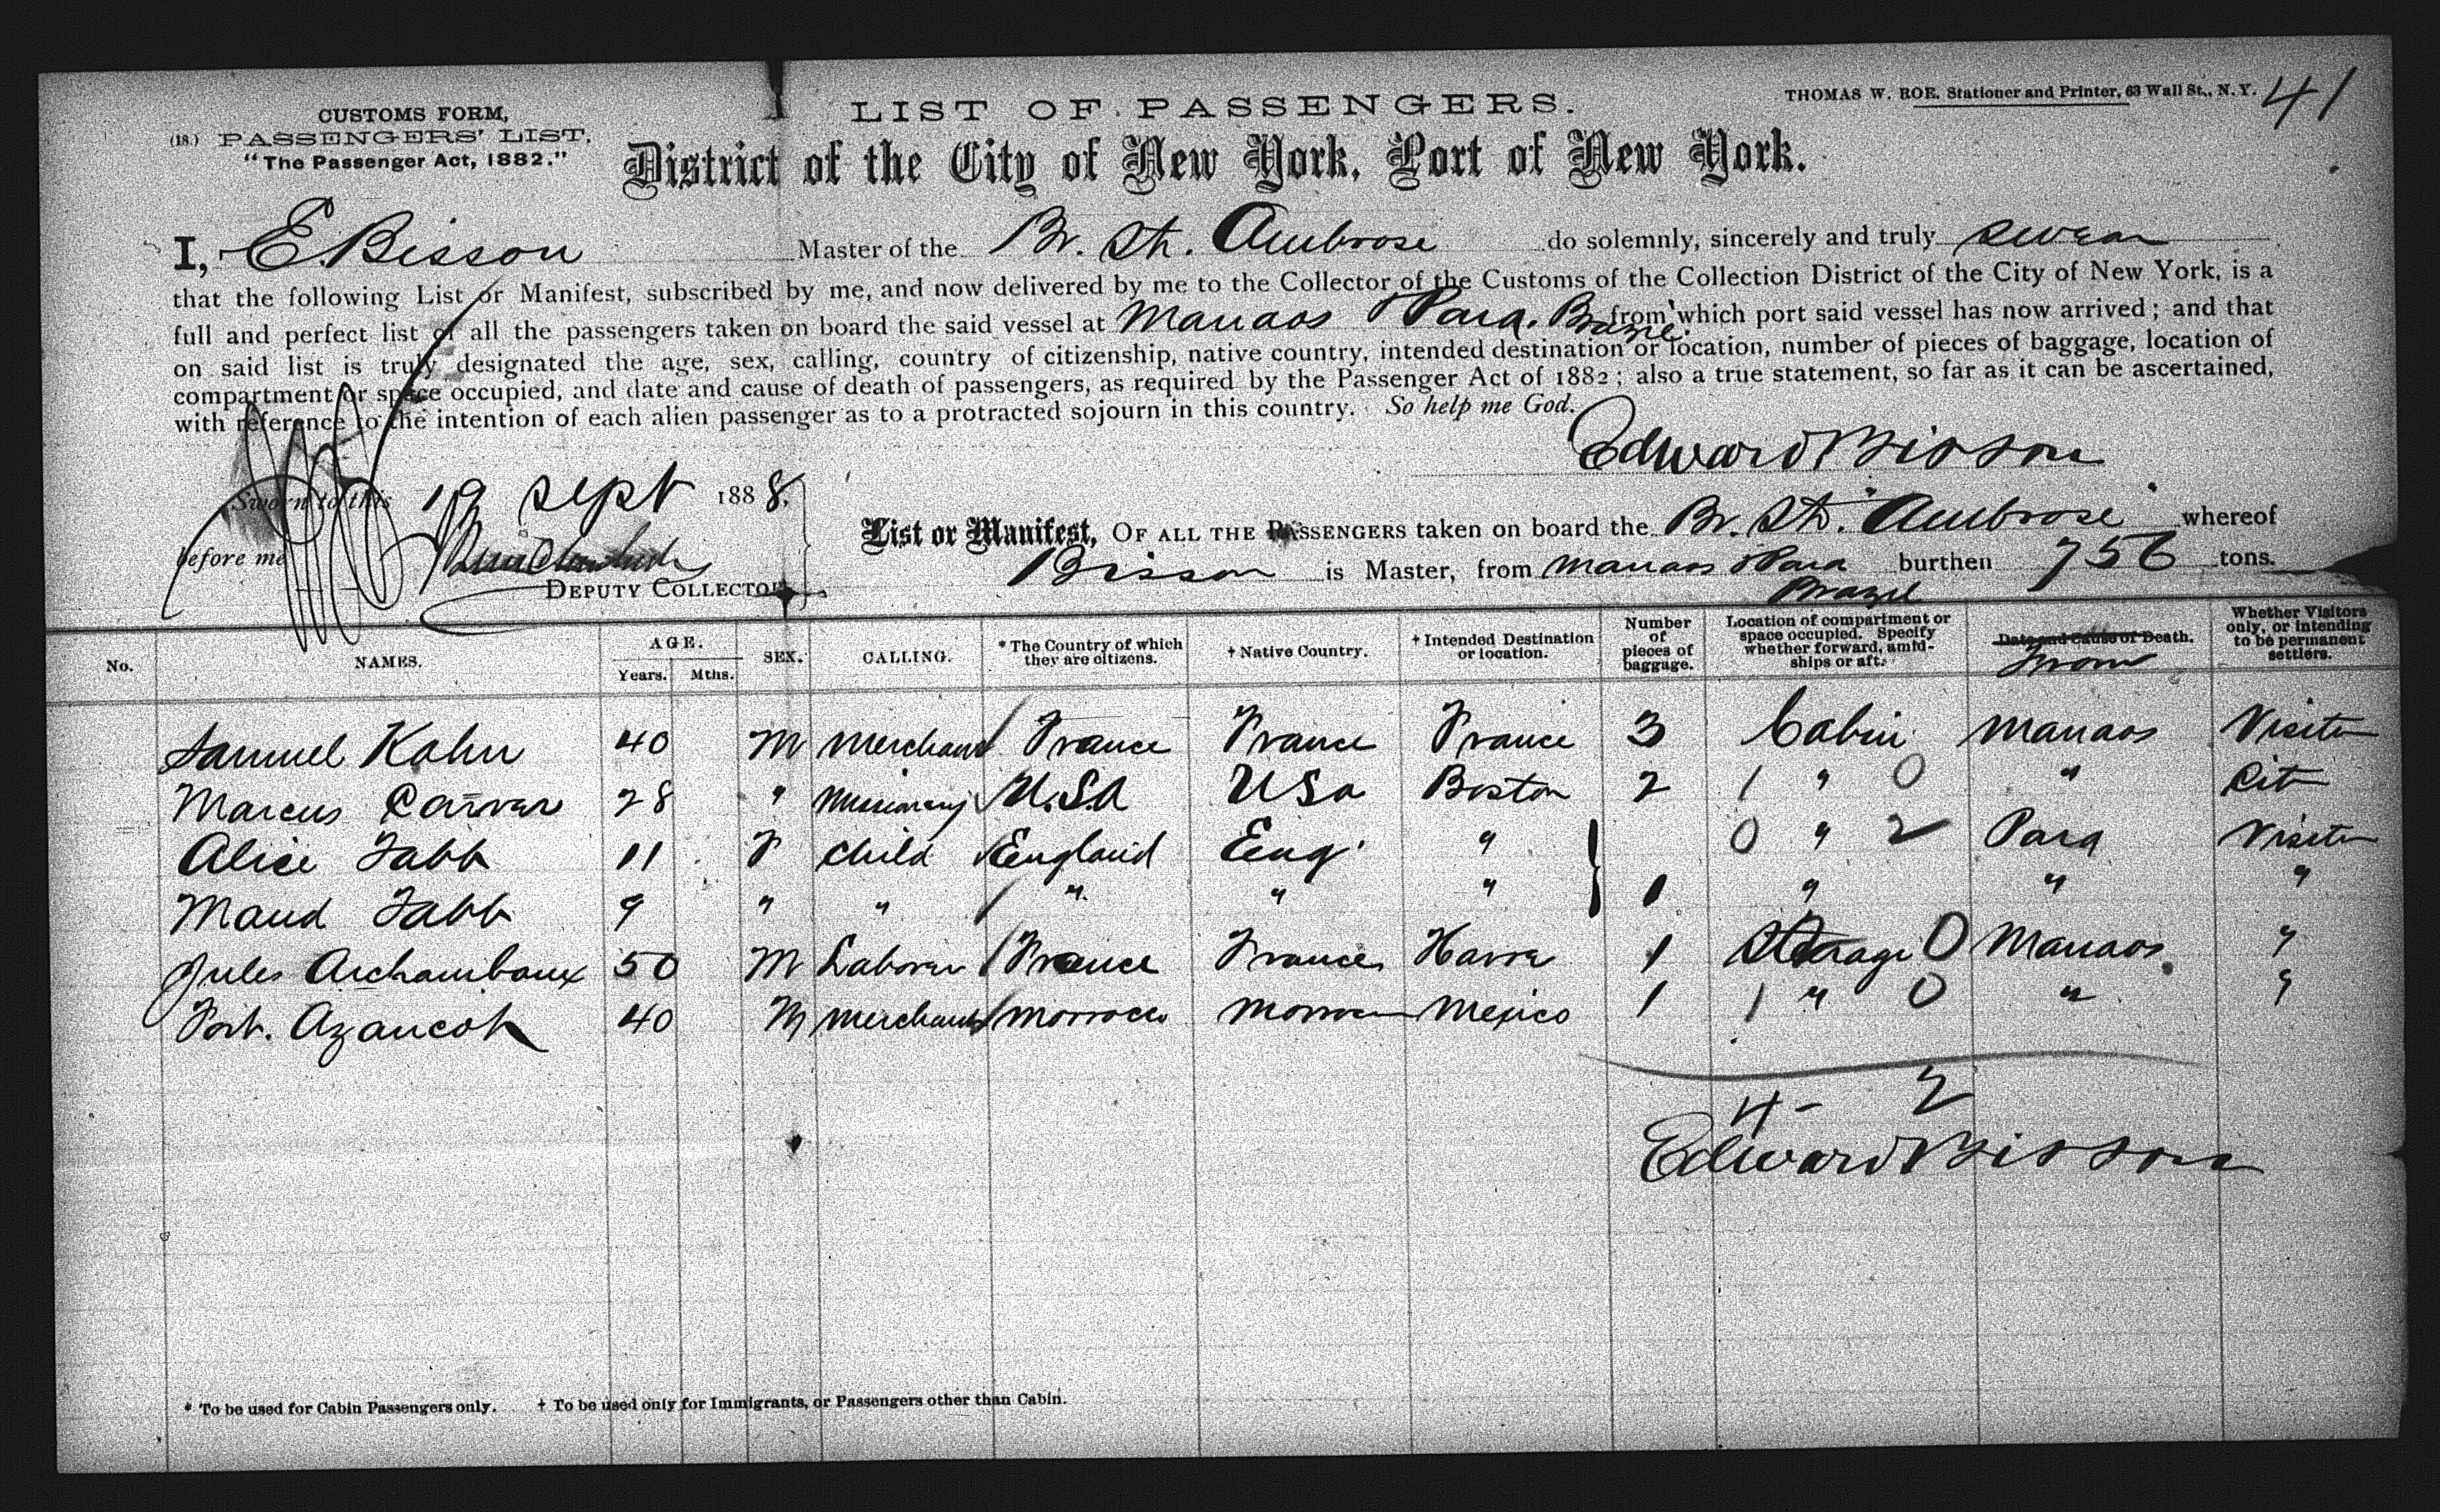 CUSTOMS FORM,
(18.) PASSENGERS' LIST,
"The Passenger Act, 1882."
LIST OF PASSENGERS.
THOMAS W. ROE. Stationer and Printer, 63 Wall St., N. Y.
41
District of the City of New York, Port of New York.
I, E. Bisson Master of the Br. Str. Ambrose do solemnly, sincerely and truly swear
that the following List or Manifest, subscribed by me, and now delivered by me to the Collector of the Customs of the Collection District of the City of New York, is a
full and perfect list of all the passengers taken on board the said vessel at Manaos & Para. Brazil from which port said vessel has now arrived; and that
on said list is truly designated the age, sex, calling, country of citizenship, native country, intended destination or location, number of pieces of baggage, location of
compartment or space occupied, and date and cause of death of passengers, as required by the Passenger Act of 1882; also a true statement, so far as it can be ascertained,
with reference to the intention of each alien passenger as to a protracted sojourn in this country. So help me God.
Edward Bisson
Sworn to this 19 Sept 1888.
before me
DEPUTY COLLECTOR
List or Manifest, OF ALL THE PASSENGERS taken on board the Br. Str. "Ambrose" whereof
Bisson is Master, from Manaos & Para Brazil burthen 756 tons.
No. NAMES. AGE. Years. Mths. SEX. CALLING. * The Country of which they are citizens. † Native Country. † Intended Destination or location. Number of pieces of baggage. Location of compartment or space occupied. Specify whether forward, amid-ships or aft. Date and Cause of Death. From Whether Visitors only, or intending to be permanent settlers.
Samuel Kahn 40 M Merchant France France France 3 Cabin Manaos Visitor
Marcus Carver 28 " Missionary U.S.A USA Boston 2 1 " 0 " Cit
Alice Tabb 11 F Child England Eng. " 0 " 2 Para Visitor
Maud Tabb 9 " " " " " 1 " " "
Jules Archambaux 50 M Laborer France France Havre 1 Sterage 0 Manaos "
Fort. Azancot 40 M Merchant Morrocco Morrocco Mexico 1 1 " 0 " "
4 - 2
Edward Bisson
* To be used for Cabin Passengers only. † To be used only for Immigrants, or Passengers other than Cabin.